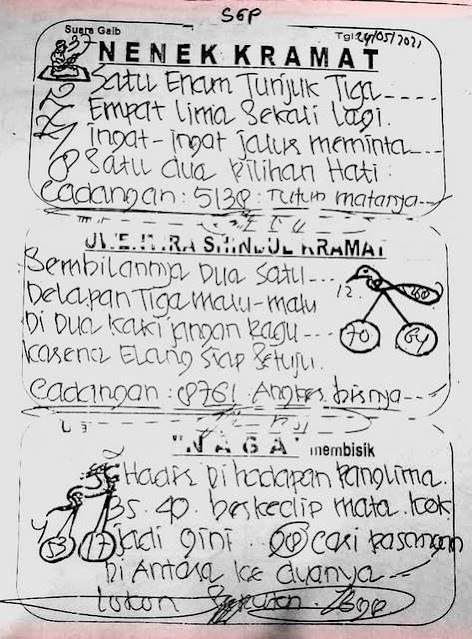 SGP
Suara Gaib
Tgl 24/05/2021
37
NENEK KRAMAT
Satu Enam Tunjuk Tiga
Empat lima Sekali lagi.
ingat-ingat jalur meminta
Satu dua Pilihan Hati
Cadangan: 5138 Tutup matanya
KRAMAT
Sembilannya Dua Satu
Delapan Tiga malu-malu
Di Dua kaki jangan Ragu
karena Elang Siap Setuju.
12.
70
64
Cadangan: 8761 Angker bisnya
"NAGA" membisik
Hadir Di hadapan Panglima.
35.40. berkedip mata. kok
jadi gini cari Pasangan
Di Antara ke duanya
53
17